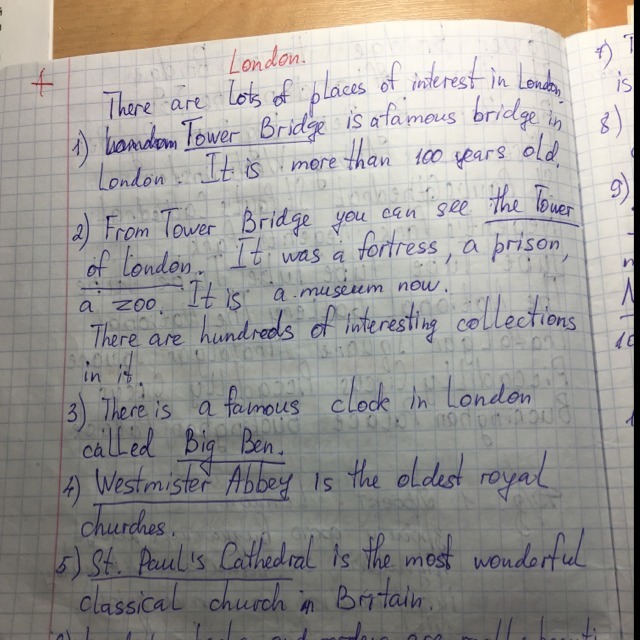 London.
There are lots of places of interest in London.
1) Tower Bridge is a famous bridge in
London. It is more than 100 years old.
2) From Tower Bridge you can see the Tower
of London. It was a fortress, a prison,
a zoo. It is a museum now.
There are hundreds of interesting collections
in it.
3) There is a famous clock in London
called Big Ben.
4) Westmister Abbey is the oldest royal
churches.
5) St. Paul's Cathedral is the most wonderful
classical church in Britain.
7) T
is
8)
9)
10